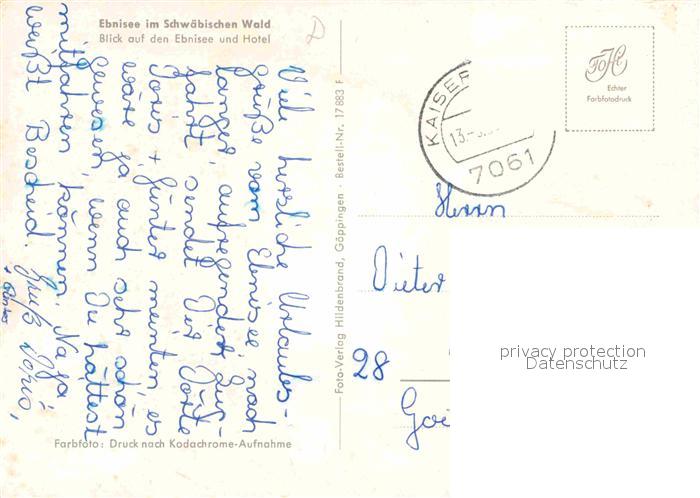 Ebnisee im Schwäbischen Wald
Blick auf den Ebnisee und Hotel
Viele herzliche Urlaubs-
grüße vom Ebnisee nach
langer, aufregender Zu-
fahrt sendet Dir Dörte
Doris + Günter meinten, es
wäre ja auch sehr schön
gewesen, wenn Du hättest
mitfahren können. Na ja
weißt Bescheid. Gruß Doris,
+ Günter
Farbfoto: Druck nach Kodachrome-Aufnahme
Foto-Verlag Hildenbrand, Göppingen · Bestell-Nr. 17 883 F
KAISER
13.
7061
ToHi
Echter
Farbfotodruck
Herrn
Dieter
28
privacy protection
Datenschutz